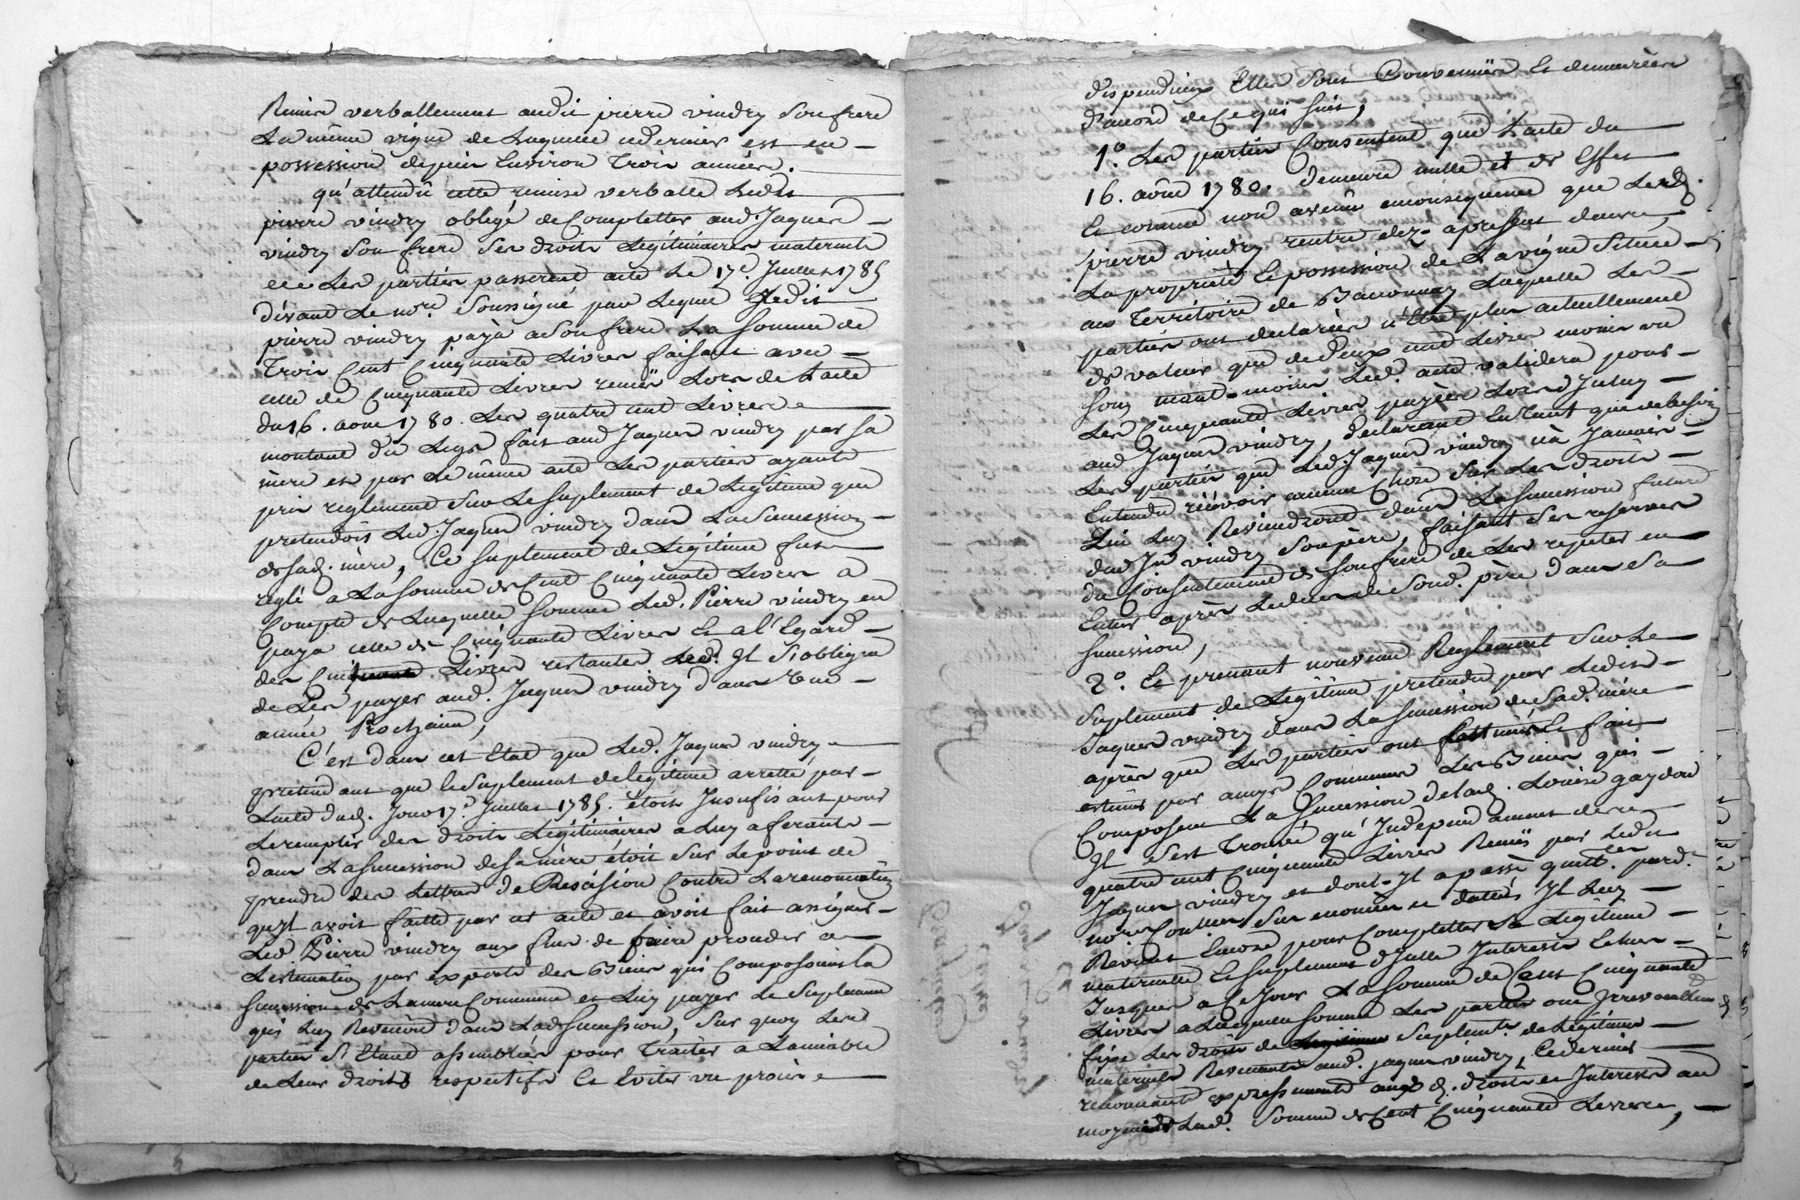 Remise verballement audit pierre vindry son frere
La même vigne de laquelle ce dernier est en
possession depuis Environ Trois années.
qu'attendû cette remise verballe Ledit
pierre vindry obligé de Completter aud. Jaques
vindry son frere ses droits Légitimaires maternels
Les parties passerent acte Le 17e. Juillet 1785
dévant Le nore. soussigné par Lequel Ledit
pierre vindry paÿa a son frere La somme de
Trois Cent Cinquante Livres faisant avec
celle de Cinquante Livres remise Lors de L'acte
du 16. aout 1780. Les quatre cent Livres
montant du Legs fait aud Jaques vindry par sa
mère et par Le même acte Les parties ayants
pris reglement sur Le suplement de Legitime que
pretendoit Led Jaques vindry dans La Succession
de sad. mère, Ce suplement de Légitime fut
reglé a La somme de Cent Cinquante Livres a
Compte de Laquelle somme Led. Pierre vindry en
paya celle de Cinquante Livres Et a l'Egard
des Cent Livres restantes Il s'obligea
de Les payer aud. Jaques vindry dans une
année Prochaine,
C'est dans cet Etat que Led. Jaques vindry
pretendant que le suplement de legitime arretté par
L'acte dud. Jour 17e. Juillet 1785. étoit Insufisant pour
Le remplir des droits Légitimaires a Luy aferants
dans La Succession de sa mère étoit sur Le point de
prendre des Lettres de Rescision Contre La renonciation
qu'il avoit faitte par cet acte et avoit fait assigner
Led Pierre vindry aux fins de faire proceder a
L'estimation par experts des Biens qui Composoient la
succession de La mere Commune et Luy payer Le Suplement
qui Luy Revenoit dans Lad succession, sur quoy Les
parties s'Etant assemblées pour Traiter a L'amiable
de Leurs droits respectifs Et Eviter un procès
dispendieux Elles sont Convenues Et demeurées
d'accord de Ce qui suit,
1º. Les parties Consentent que L'acte du
16. aout 1780. demeure nulle et de Effet
Et comme non avenu en consequence que Led.
pierre vindry rentre dez a present dans
La proprieté Et possession de La vigne Située
au Territoire de Laquelle Les
parties ont declarées n'Etre plus actuellement
de valeur que de deux cent Livres moins au
soin Led. acte validera pour
Les Cinquante Livres payées Lors d'Iceluy
aud Jaques vindry, declarant En Tant que de besoin
Les parties que Led. Jaques vindry n'a Jamais
Entendu recevoir aucune Chose sur Les droits
qui Luy Reviendront dans La Succession future
dud Jn vindry son père, faisant ses reserves
du Consentement de son frere de Les repeter en
Entier après Le deces de Sond. père dans Sa
succession,
2º. Et prenant nouveau Reglement sur Le
Suplement de Légitime pretendu par Ledit
Jaques vindry dans La succession de Sad. mère
après que Les parties ont fait
estimer par amys Communs Les Biens qui
Composent La Succession de Lad. Louise gaydou
Il s'est Trouvé qu'Independament des
quatre cent Cinquante Livres Remis par Ledit
Jaques vindry et dont Il a passé quittces. pard.
nore Il Luy
Revient Encore pour Completter Sa Légitime
maternelle Et suplement d'Icelle Interests Echus
Jusques a Ce Jour La somme de Cent Cinquante
Livres a Laquelle somme Les parties ont Irrevocablement
fixé Les droits de Suplemt. de Légitime
maternels Revenants aud. Jaques vindry, Ce dernier
renonceant expressement auxd. droits et Interests au
moyen de Lad. Somme de Cent Cinquante Livres,